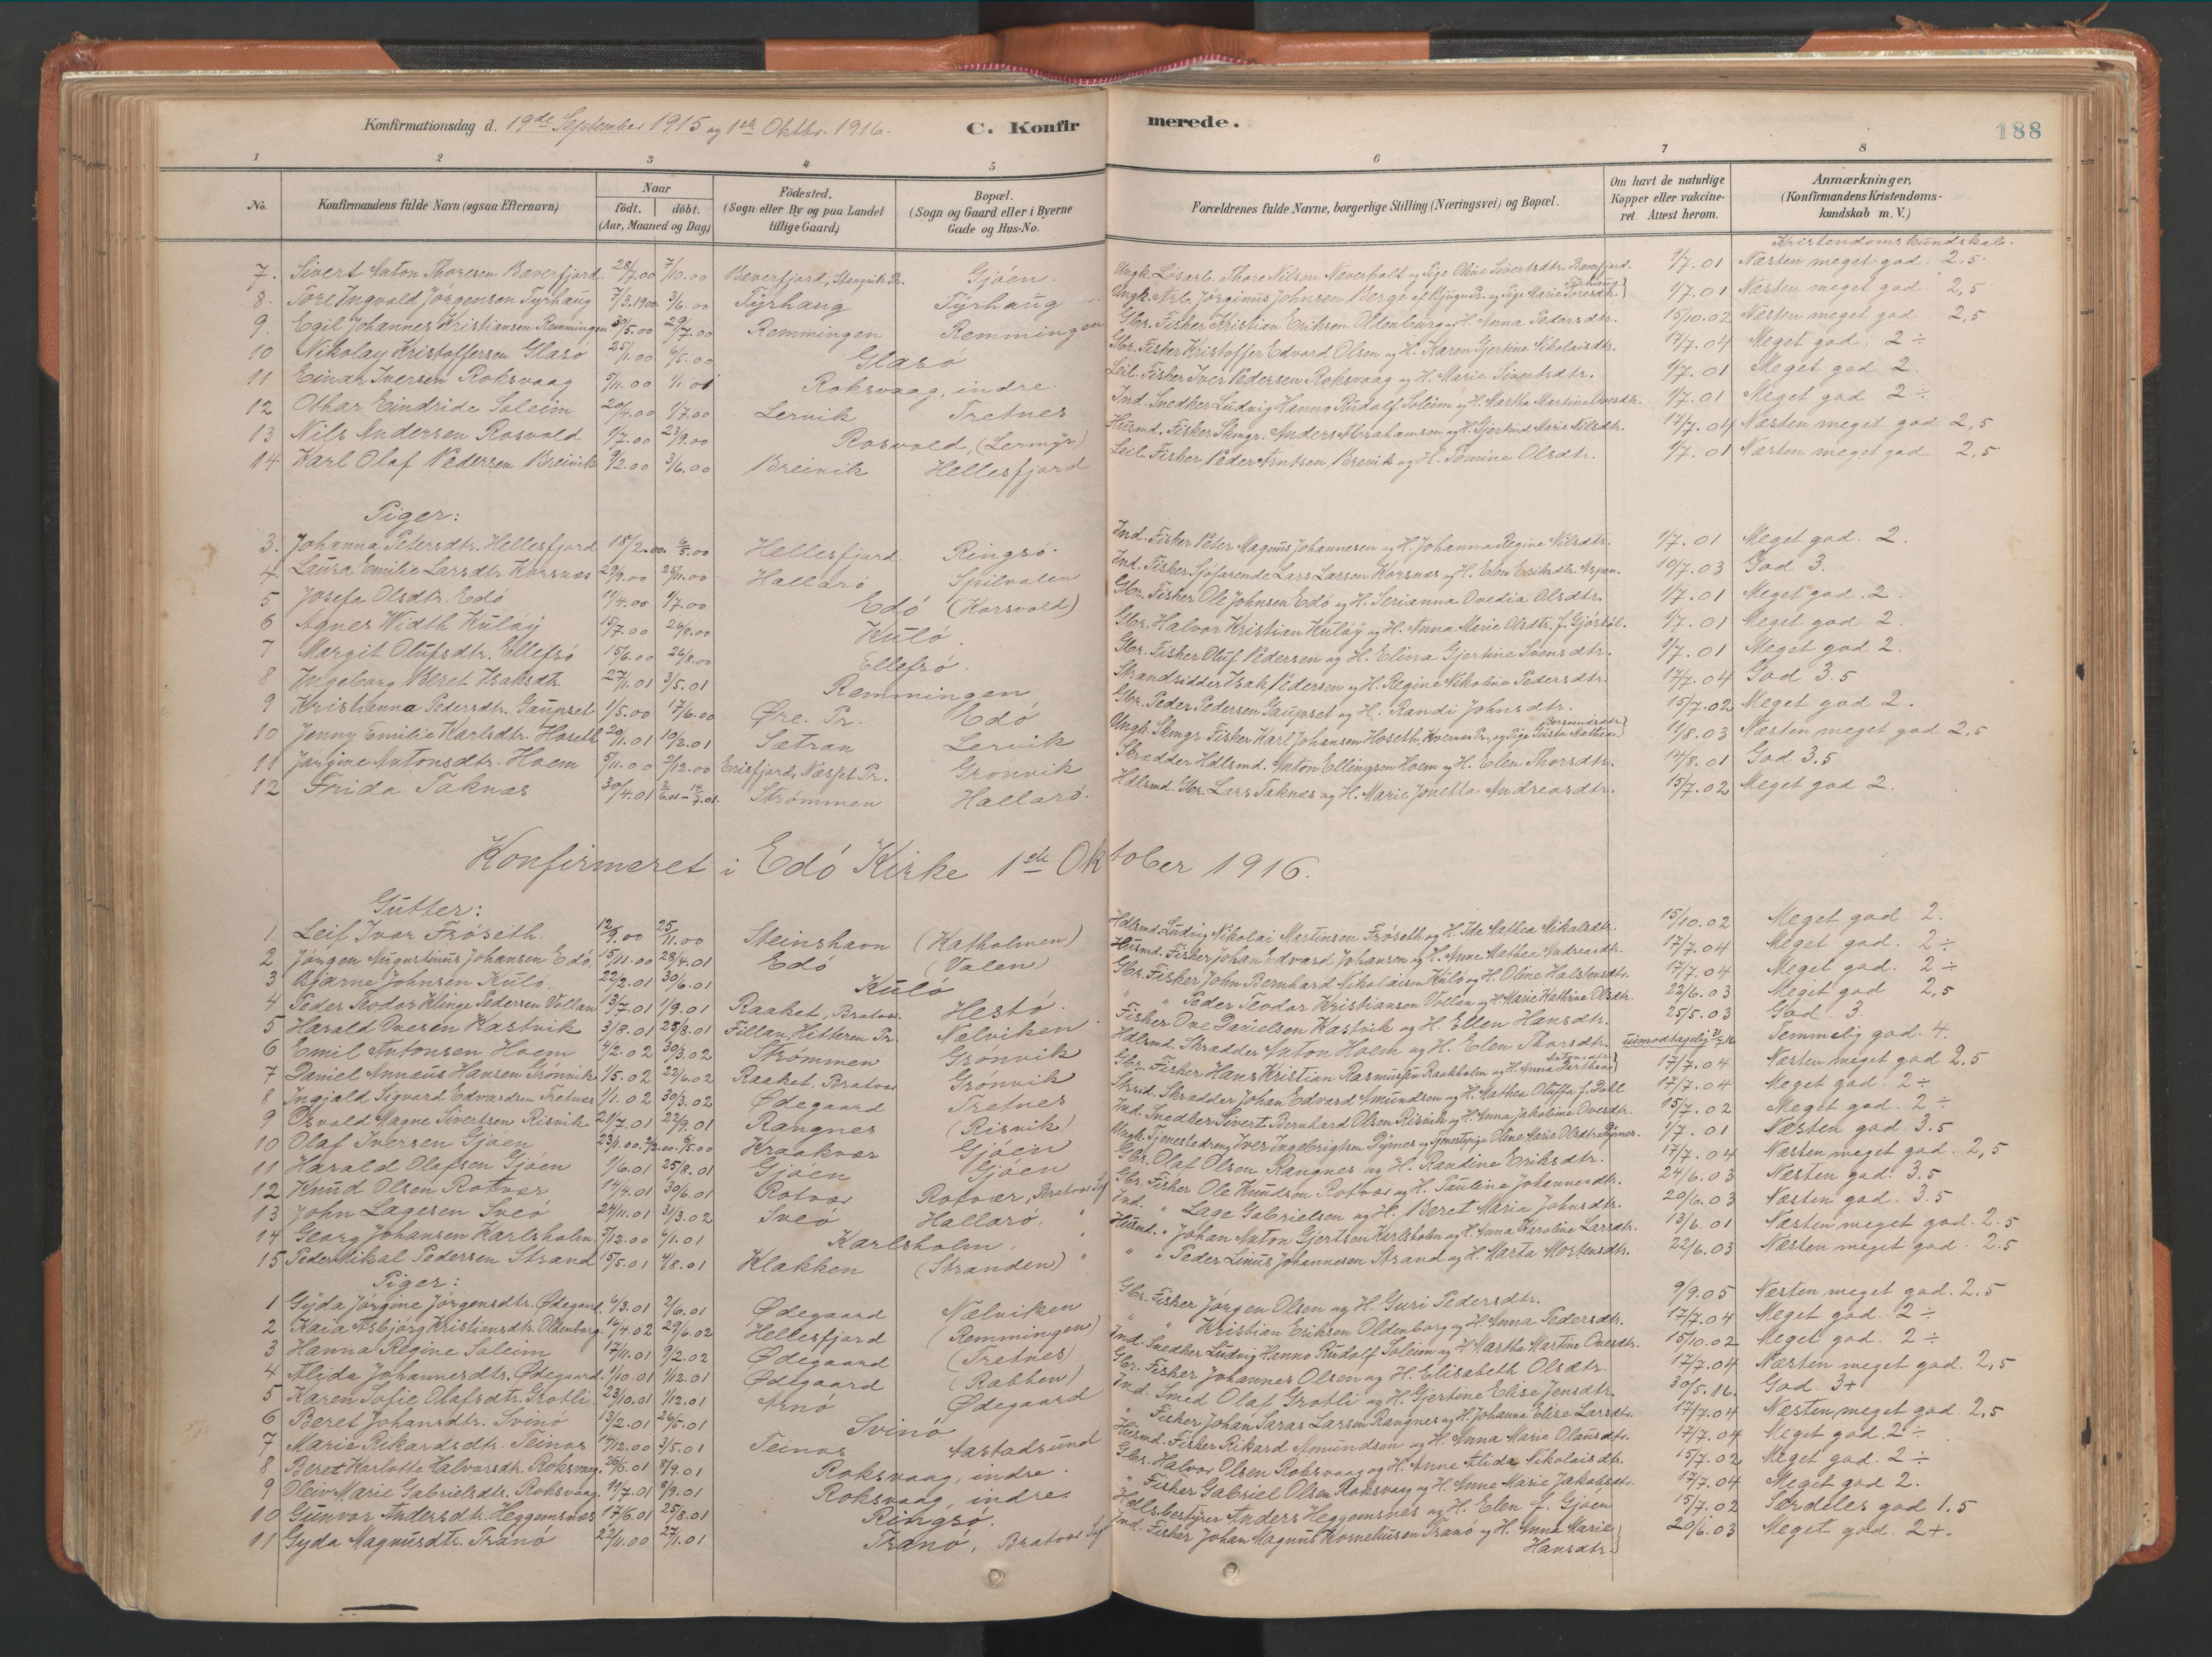 Konfirmationsdag d. 19de September 1915 og 1ste Oktbr. 1916. C. Konfirmerede. 188
1 2 3 4 5 6 7 8
No. Konfirmandens fulde Navn (ogsaa Efternavn) Naar födt. döbt. (Aar, Maaned og Dag) Födested. (Sogn eller By og paa Landet tillige Gaard) Bopæl. (Sogn og Gaard eller i Byerne Gade og Hus-No. Forældrenes fulde Navne, borgerlige Stilling (Næringsvei) og Bopæl. Om havt de naturlige Kopper eller vakcineret Attest herom. Anmærkninger, (Konfirmandens Kristendomskundskab m. V.)
Kristendomskundskab.
7. Sivert Anton Thoresen Bæverfjord. 28/7.00 7/10.00 Bæverfjord, Stangvik Pr. Gjøen. Ungk. Løsarb. Thore Nilsen Næverholt og Pige Oline Sivertsdtr. Bæverfjord. 1/7.01 Næsten meget god. 2.5
8. Tore Ingvald Jörgensen Tyrhaug 7/3.1900 3/6.00 Tyrhaug Tyrhaug Ungk. Arb. Jörginus Johnsen Berge af Kjugn Pr. og Pige Marie Toresdtr. Tyrhaug) 1/7.01 Næsten meget god. 2,5
9. Egil Johannes Kristiansen Remmingen 30/5.00 29/7.00 Remmingen Remmingen Gbr. Fisker Kristian Eriksen Oldenburg og H. Anna Pedersdtr. 15/10.02 Næsten meget god 2,5
10 Nikolay Kristoffersen Glasö 25/1.00 6/5.00 Glasö Gbr. Fisker Kristoffer Edvard Olsen og H. Karen Gjertine Nikolaisdtr. 17/7.04 Meget god. 2 ÷
11 Einar Iversen Roksvaag 5/11.00 1/1 01 Roksvaag, indre. Leil. Fisker Iver Pedersen Roksvaag og H. Marie Sivertsdtr. 1/7.01 Meget god 2.
12 Othar Eindride Soleim 20/4.00 1/7.00 Lervik Tretnes Ind. Snedker Ludvig Hanno Rudolf Soleim og H. Martha Martine Ovesdtr. 1/7.01 Meget god 2 ÷
13 Nils Andersen Rosvold 1/7.00 23/9.00 Rosvold, (Lermyr) Husmd. Fisker Skmgr. Anders Abrahamsen og H. Gjertrud Marie Nilsdtr. 17/7.04 Næsten meget god 2,5
14 Karl Olaf Pedersen Breivik 9/2.00 3/6.00 Breivik Hellesfjord Leil. Fisker Peder Arntsen Breivik og H. Tomine Olsdtr. 1/7.01 Næsten meget god 2.5
Piger:
3. Johanna Petersdtr. Hellesfjord 18/2.00. 6/5.00 Hellesfjord. Ringsö. Ind. Fisker Peter Magnus Johannesen og H. Johanna Regine Nilsdtr. 1/7.01 Meget god. 2.
4. Laura Emilie Larsdtr. Korsnæs 29/9.00 25/11.00 Hallarö Spilvalen Ind. Fisker, Sjöfarende Lars Larsen Korsnæs og H. Elen Eriksdtr. Aspen. 10/7.03 God 3.
5 Josefa Olsdtr. Edö 19/4.00 1/7.00 Edö (Korsvold) Gbr. Fisker Ole Johnsen Edö og H. Serianna Ovedia Olsdtr. 1/7.01 Meget god. 2.
6 Agnes Width Kuløy 15/7.00 26/8.00 Kulö. Gbr. Halvor Kristian Kuløy og H. Anna Marie Olsdtr. f. Gjöstöl. 1/7.01 Meget god 2.
7 Margit Olufsdtr. Ellefsö 15/6.00 26/8.00 Ellefsö. Gbr. Fisker Oluf Pedersen og H. Elina Gjertine Svensdtr. 1/7.01 Meget god 2.
8 Ingeborg Beret Isaksdtr. 27/1.01 3/5.01 Remmingen Strandsidder Isak Pedersen og H. Regine Nikoline Pedersdtr. 17/7.04 God 3.5
9 Kristianna Pedersdtr. Gaupset 1/5.00 17/6.00 Øre. Pr. Edö Gbr. Peder Pedersen Gaupset og H. Randi Johnsdtr. 15/7.02 Meget god 2.
10 Jenny Emilie Karlsdtr. Hoseth 20/1.01 10/2.01 Sætran Lervik Ungk. Skmgr. Fisker Karl Johansen Hoseth, Kvernes Pr., og Pige Mathea 11/8.03 Næsten meget god 2.5
11 Jörgine Antonsdtr. Hoem 5/11.00 2/12.00 Erisfjord, Næsset Pr. Grönvik Skrædder Hdlsmd. Anton Ellingsen Hoem og H. Elen Thorsdtr. 14/8.01 God 3.5
12 Frida Taknæs 30/4.01 2/6.01–14/7.01. Strömmen Hallarö. Hdlsmd. Gbr. Lars Taknæs og H. Marie Jonetta Andreasdtr. 15/7.02 Meget god 2.
Konfirmeret i Edö Kirke 1ste Oktober 1916.
Gutter:
1 Leif Ivar Fröseth 12/9.00 25/11.00 Steinshavn (Kalholmen) Hdlsmd. Ludvig Nikolai Martinsen Fröseth og H. Ida Mathea Mikalsdtr. 15/10.02 Meget god 2.
2 Jörgen Augustinus Johansen Edö 15/11.00 28/4.01 Edö (Valen) Husmd. Fisker Johan Edvard Johansen og H. Anne Mathea Andreasdtr. 17/7.04 Meget god. 2 ÷
3 Bjarne Johnsen Kulö 22/2.01 30/6.01 Kulö Gbr. Fisker John Bernhard Nikolaisen Kulö og H. Oline Halstensdtr. 17/7.04 Meget god. 2 ÷
4 Peder Teodor Klinge Pedersen Vollan 13/7.01 1/9.01 Raaket, Bratvær Hestö. " " Peder Teodor Kristiansen Vollan og H. Marie Kathrine Olsdtr. 22/6.03 Meget god 2,5
5 Harald Ovesen Kastvik 3/8.01 25/8.01 Fillan, Hitteren Pr. Nelviken Fisker Ove Danielsen Kastvik og H. Ellen Hansdtr. 25/5.03 God 3.
6 Emil Antonsen Hoem 4/2.02 30/3.02 Strømmen Grönvik Hdlsmd. Skrædder Anton Hoem og H. Elen Thorsdtr. uimodtagelig Temmelig god 4.
7 Daniel Annæus Hansen Grönvik 1/5.02 22/6.02 Raaket. Bratvær Grönvik Gbr. Fisker Hans Kristian Rasmussen Raakholm og H. Anna Parthea 17/7.04 Næsten meget god 2.5
8 Ingjald Sigvard Edvardsen Tretnes 1/1.02 30/3.02 Ødegaard Tretnes Skrædder Johan Edvard Amundsen og H. Mathea Oluffa f. Dahl 17/7.04 Meget god. 2 ÷
9 Osvald Magne Sivertsen Risvik 21/7.01 22/9.01 Rangnes (Risvik) Ind. Snedker Sivert Bernhard Olsen Risvik og H. Anna Jakobine Ovesdtr. 15/7.02 Meget god. 2 ÷
10 Olaf Iversen Gjøen 23/1.00. Kraakvær Gjøen Ungk. Tjenestedreng Iver Ingebrigtsen Dyrnes og Tjenestepige Oline Marie Olsdtr. Dyrnes. 1/7.01 Næsten god. 3.5
11 Harald Olafsen Gjöen 1/6.01 25/8.01 Gjöen Gjöen Gbr. Olaf Olsen Rangnes og H. Randine Eriksdtr. 17/7.04 Næsten meget god 2,5
12 Knud Olsen Rotvær 14/4.01 30/6.01 Rotvær Rotvær, Bratvær Sogn Gbr. Fisker Ole Knudsen Rotvær og H. Pauline Johannesdtr. 24/6.03 Næsten god. 3.5
13 John Lagesen Sveö 24/11.01 31/3.02 Sveö Hallarö. " Ind. " Lage Gabrielsen og H. Beret Maria Johnsdtr. 20/6.03 Næsten god. 3.5
14 Georg Johansen Karlsholm 5/12.00 6/1.01 Karlsholm. " Husmd. " Johan Anton Gjertsen Karlsholm og H. Anna Karoline Larsdtr. 13/6.01 Næsten meget god. 2.5
15 Peder Mikal Pedersen Strand 15/5.01 4/8.01 Klakken (Stranden) " " " Peder Linus Johannesen Strand og H. Marta Mortensdtr. 22/6.03 Næsten meget god. 2.5
Piger:
1 Gyda Jörgine Jörgensdtr. Ødegaard. 6/3.01 2/6.01 Ødegaard Nelviken Gbr. Fisker Jörgen Olsen og H. Guri Pedersdtr. 9/9.05 Næsten meget god. 2.5
2 Kaia Asbjörg Kristiansdtr. Oldenborg. 16/4.02 29/6.02 Hellesfjord (Remmingen) " " Kristian Eriksen Oldenborg og H. Anna Pedersdtr. 17/7.04 Meget god. 2 ÷
3 Hanna Regine Soleim 17/11.01 9/2.02 Ødegaard (Tretnes) Ind. Snedker Ludvig Hanno Rudolf Soleim og H Martha Martine Ovesdtr. 15/10.02 Meget god. 2 ÷
4 Alida Johannesdtr. Ødegaard. 1/10.01 1/12.01 Ødegaard (Rabben) Gbr. Fisker Johannes Olsen og H. Elisabeth Olsdtr. 17/7.04 Næsten meget god. 2,5
5 Karen Sofie Olafsdtr. Grotli. 23/10.01 1/12.01 Arnö Ødegaard Ind. Smed Olaf Grotli og H. Gjertine Elise Jensdtr. 30/5.16. God. 3+
6 Beret Johansdtr. Svinö 13/2.01 26/5.01 Svinö " Fisker Johan Seras Larsen Rangnes og H. Johanna Elise Larsdtr. 17/7.04 Næsten meget god. 2,5
7 Marie Rikardsdtr. Teinæs 14/12.00 3/5.01 Teinæs Aastadsund Husmd. Fisker Rikard Amundsen og H. Anna Marie Olausdtr. 17/7.04 Meget god. 2 ÷
8 Beret Karlotte Halvorsdtr. Roksvaag. 26/6.01 8/9.01 Roksvaag, indre. Gbr. Halvor Olsen Roksvaag og H. Anne Alida Nikolaisdtr. 15/7.02 Meget god. 2 ÷
9 Oleiv Marie Gabrielsdtr. Roksvaag. 11/7.01 8/9.01 Roksvaag, indre. " Fisker Gabriel Olsen Roksvaag og H. Anne Marie Jakobsdtr. 17/7.04 Meget god 2.
10 Gunvor Andersdtr. Heggemsnes 17/6.01 25/8.01 Ringsö. Hdlsbestyrer Anders Heggemsnes og H. Elen f. Gjøen 15/7.02 Særdeles god 1.5
11 Gyda Magnusdtr. Tranö 22/11.00 27/1.01 Tranö, Bratvær Sogn Ind. Fisker Johan Magnus Korneliussen Tranö og H. Anna Marie Hansdtr.) 20/6.03 Meget god. 2+.